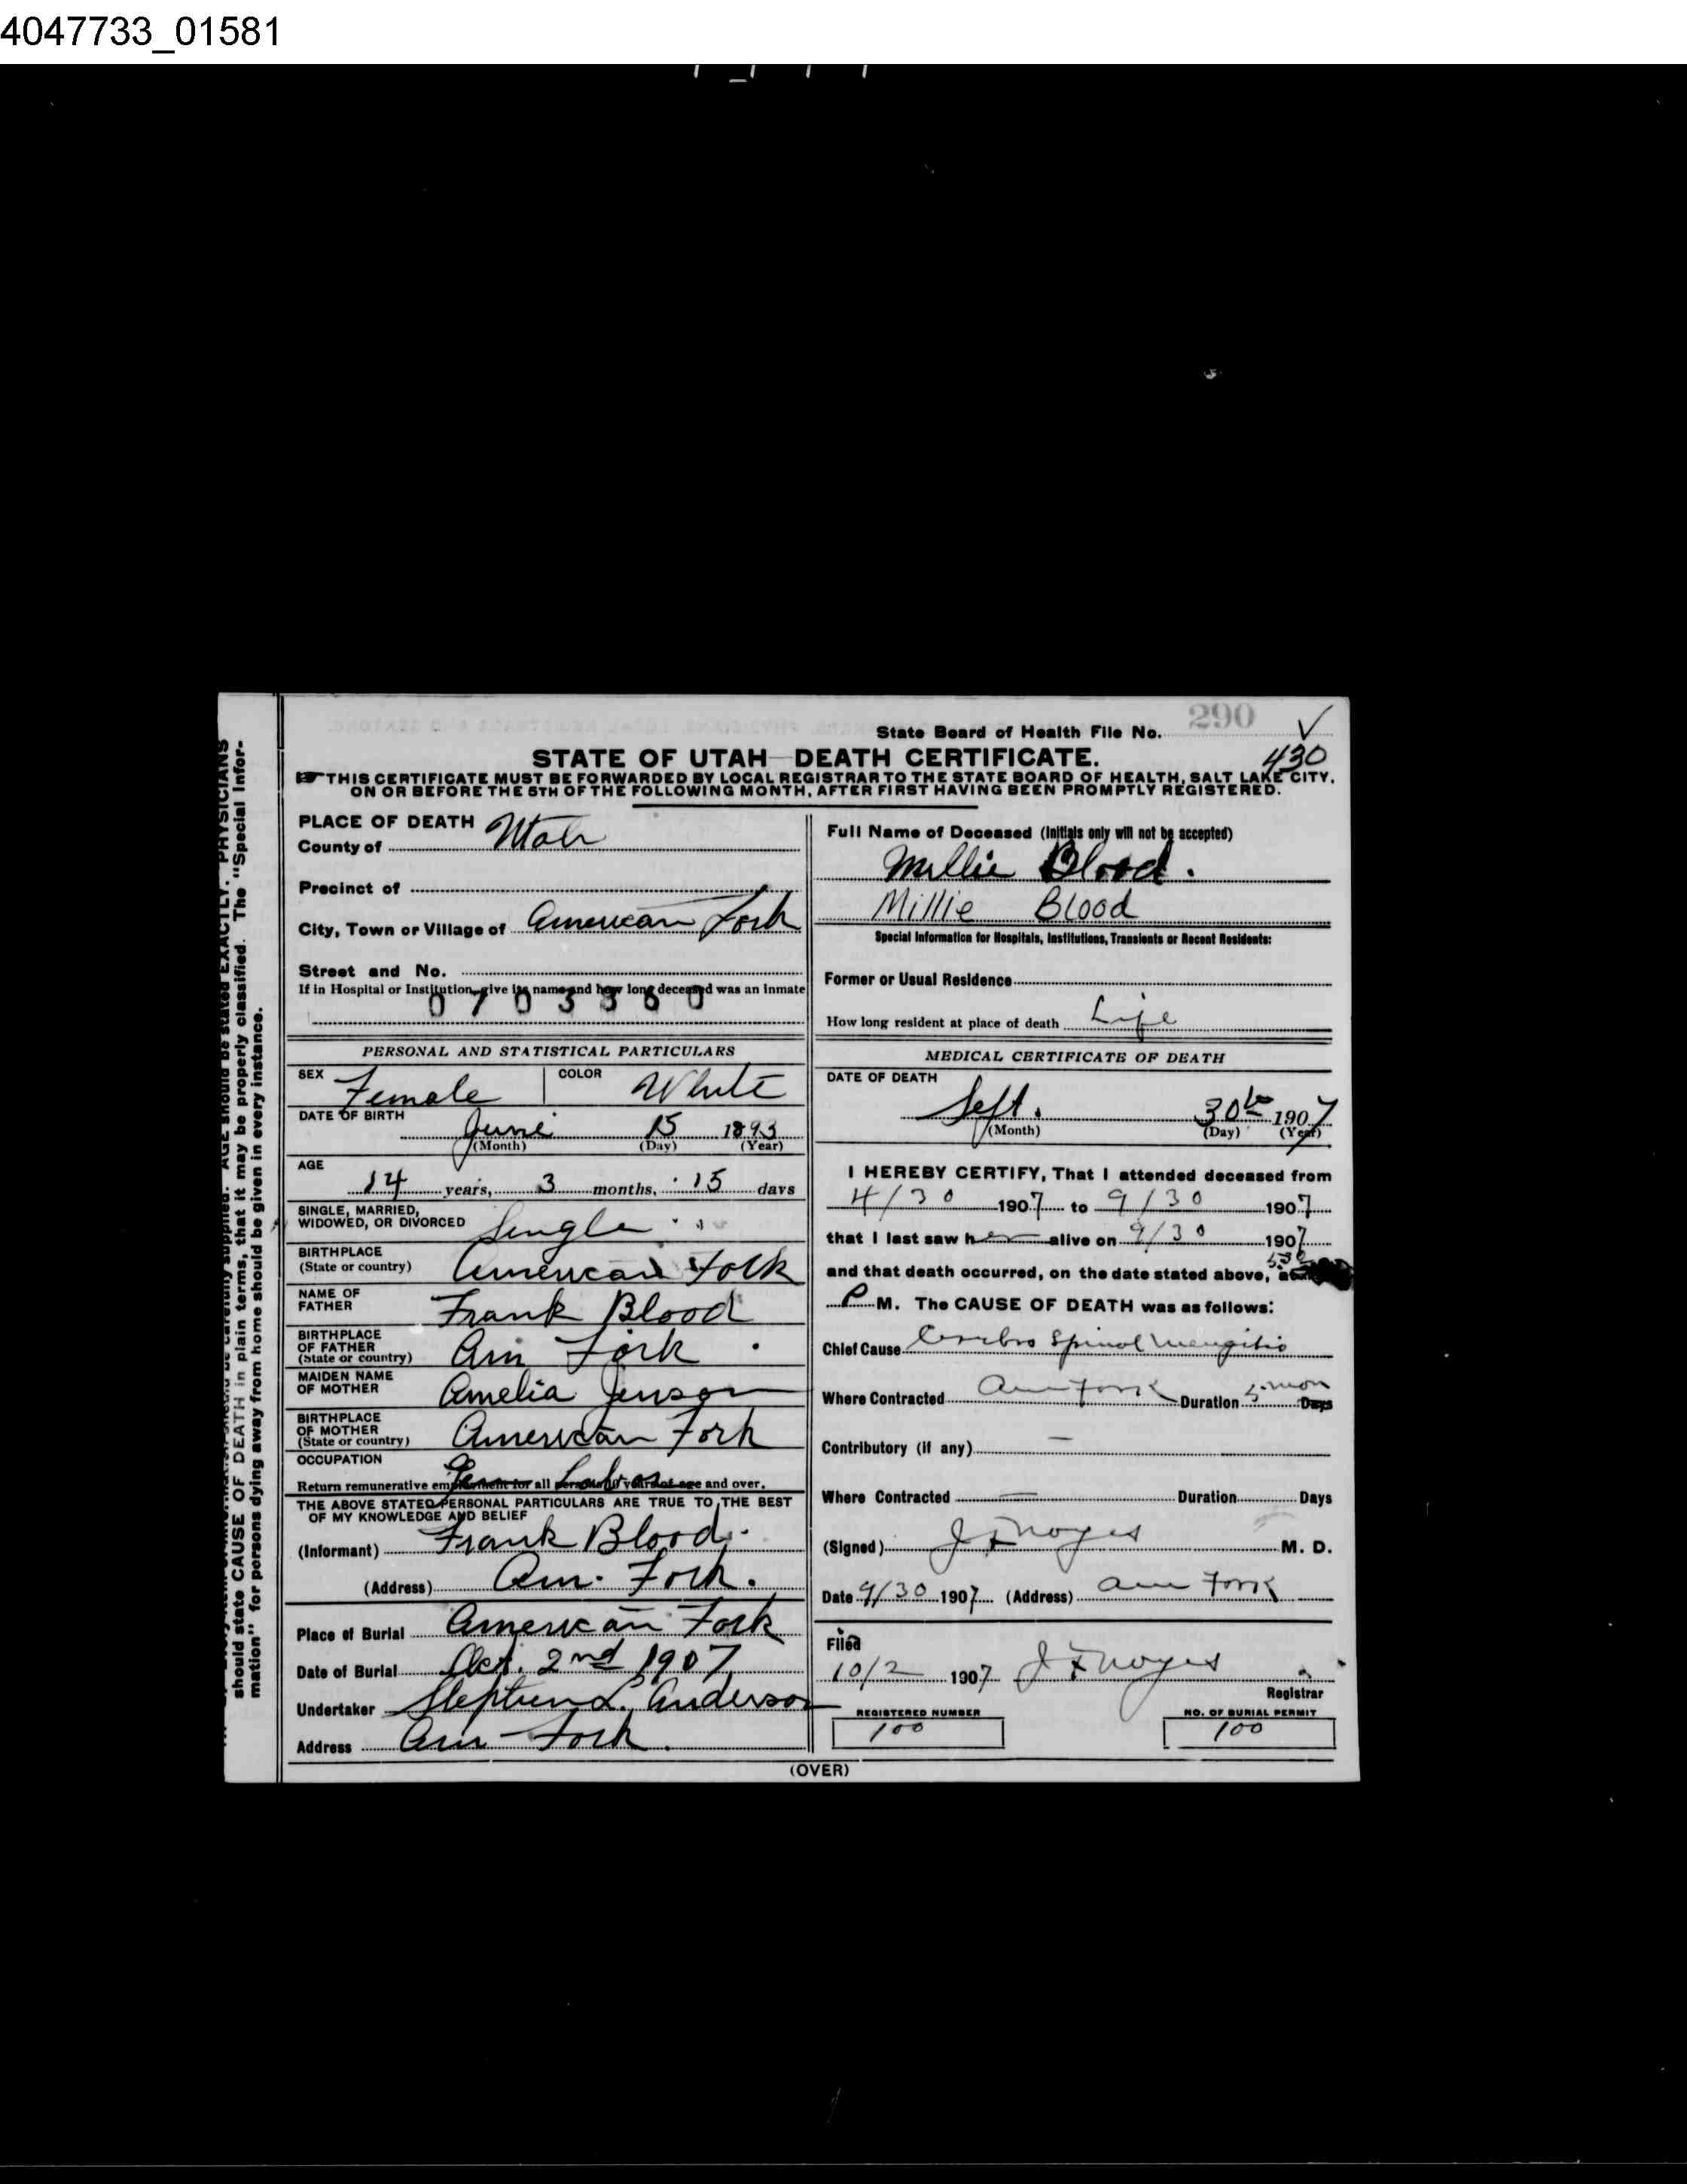 4047733_01581
290
State Board of Health File No.
430
STATE OF UTAH—DEATH CERTIFICATE.
THIS CERTIFICATE MUST BE FORWARDED BY LOCAL REGISTRAR TO THE STATE BOARD OF HEALTH, SALT LAKE CITY,
ON OR BEFORE THE 5TH OF THE FOLLOWING MONTH, AFTER FIRST HAVING BEEN PROMPTLY REGISTERED.
should state CAUSE OF DEATH in plain terms, that it may be properly classified. The "Special Infor-
mation" for persons dying away from home should be given in every instance.
PLACE OF DEATH
County of Utah
Precinct of
City, Town or Village of American Fork
Street and No.
If in Hospital or Institution, give its name and how long deceased was an inmate
0703360
PERSONAL AND STATISTICAL PARTICULARS
SEX Female COLOR White
DATE OF BIRTH
June 15 1893
(Month) (Day) (Year)
AGE
14 years, 3 months, 15 days
SINGLE, MARRIED,
WIDOWED, OR DIVORCED Single
BIRTHPLACE
(State or country) American Fork
NAME OF
FATHER Frank Blood
BIRTHPLACE
OF FATHER
(State or country) Am Fork
MAIDEN NAME
OF MOTHER Amelia Jenson
BIRTHPLACE
OF MOTHER
(State or country) American Fork
OCCUPATION
Return remunerative employment for all persons years of age and over.
THE ABOVE STATED PERSONAL PARTICULARS ARE TRUE TO THE BEST
OF MY KNOWLEDGE AND BELIEF
(Informant) Frank Blood.
(Address) Am. Fork.
Place of Burial American Fork
Date of Burial Oct. 2nd 1907
Undertaker Stephen L. Anderson
Address Am Fork.
Full Name of Deceased (Initials only will not be accepted)
Millie Blood.
Millie Blood
Special Information for Hospitals, Institutions, Transients or Recent Residents:
Former or Usual Residence
How long resident at place of death Life
MEDICAL CERTIFICATE OF DEATH
DATE OF DEATH
Sept. 30th 1907
(Month) (Day) (Year)
I HEREBY CERTIFY, That I attended deceased from
4/30 1907 to 9/30 1907
that I last saw her alive on 9/30 1907
5:30
and that death occurred, on the date stated above, at
P M. The CAUSE OF DEATH was as follows:
Chief Cause Cerebro Spinal Mengitis
Where Contracted Am Fork Duration 5 mon Days
Contributory (if any) —
Where Contracted — Duration Days
(Signed) J F Noyes M. D.
Date 9/30 1907 (Address) Am Fork
Filed
10/2 1907 J F Noyes
Registrar
REGISTERED NUMBER
100
NO. OF BURIAL PERMIT
100
(OVER)